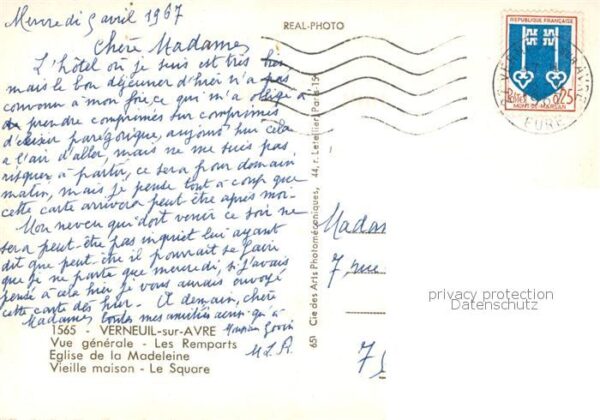 Mercredi 5 avril 1967
Chère Madame
L'hôtel où je suis est très bien
mais le bon déjeuner d'hier n'a pas
convenu à mon foie, ce qui m'a obligé à
prendre comprimés sur comprimés
d'élixir parégorique, aujourd'hui cela
a l'air d'aller, mais ne me suis pas
risquée à partir, ce sera pour demain
matin, mais je pense tout à coup que
cette carte arrivera peut être après moi.
Mon neveu qui doit venir ce soir ne
sera peut-être pas inquiet lui ayant
dit que peut-être il pourrait se faire
que je ne parte que mercredi, si j'avais
pensé à cela hier je vous aurais envoyé
cette carte dès hier. À demain, chère
Madame toutes mes amitiés ainsi qu'à
M.L.R.
REAL-PHOTO
REPUBLIQUE FRANÇAISE
POSTES 0,25
MONT-DE-MARSAN
EURE
651 Cie des Arts Photomécaniques, 44, r. Letellier, Paris-15e
Madame
7 rue
7
privacy protection
Datenschutz
1565 - VERNEUIL-sur-AVRE
Vue générale - Les Remparts
Eglise de la Madeleine
Vieille maison - Le Square